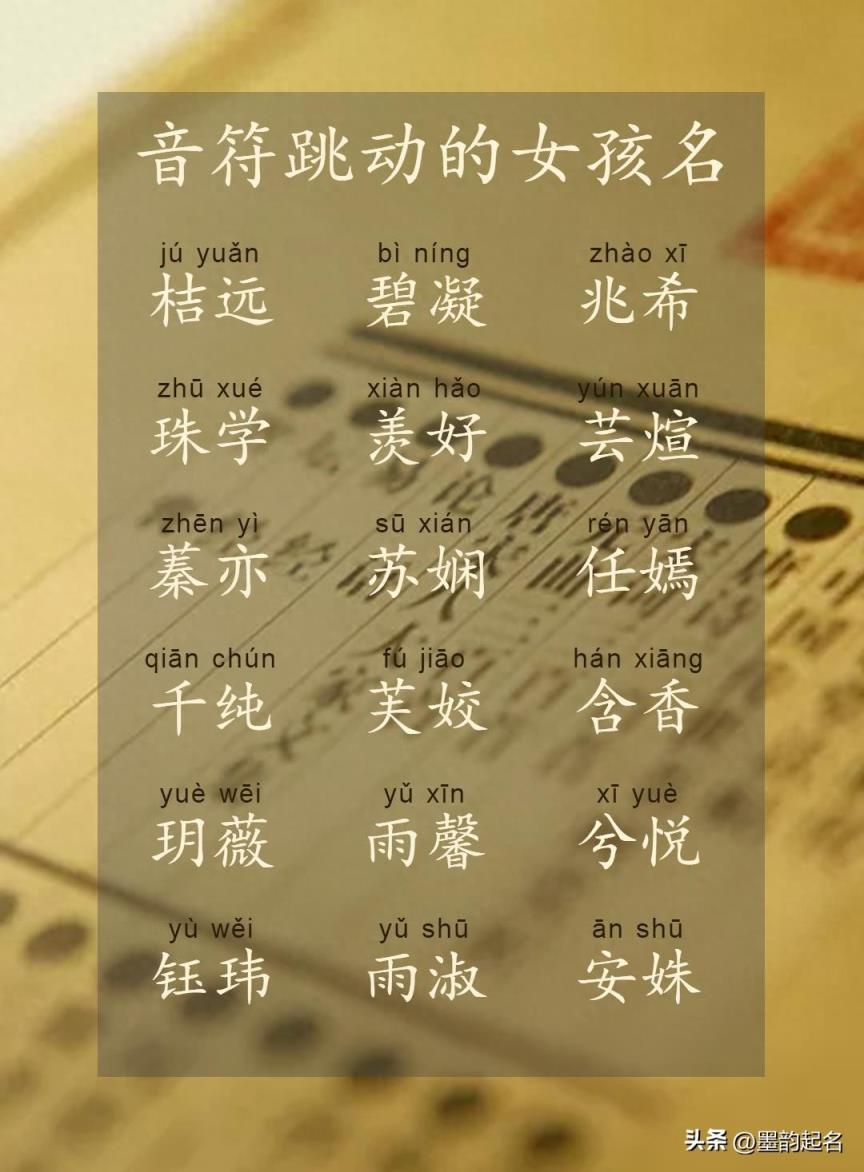 音符跳动的女孩名
jú yuǎn bì níng zhào xī
桔远 碧凝 兆希
zhū xué xiàn hǎo yún xuān
珠学 羡好 芸煊
zhēn yì sū xián rén yān
蓁亦 苏娴 任嫣
qiān chún fú jiāo hán xiāng
千纯 芙姣 含香
yuè wēi yǔ xīn xī yuè
玥薇 雨馨 兮悦
yù wěi yǔ shū ān shū
钰玮 雨淑 安姝
头条 @墨韵起名